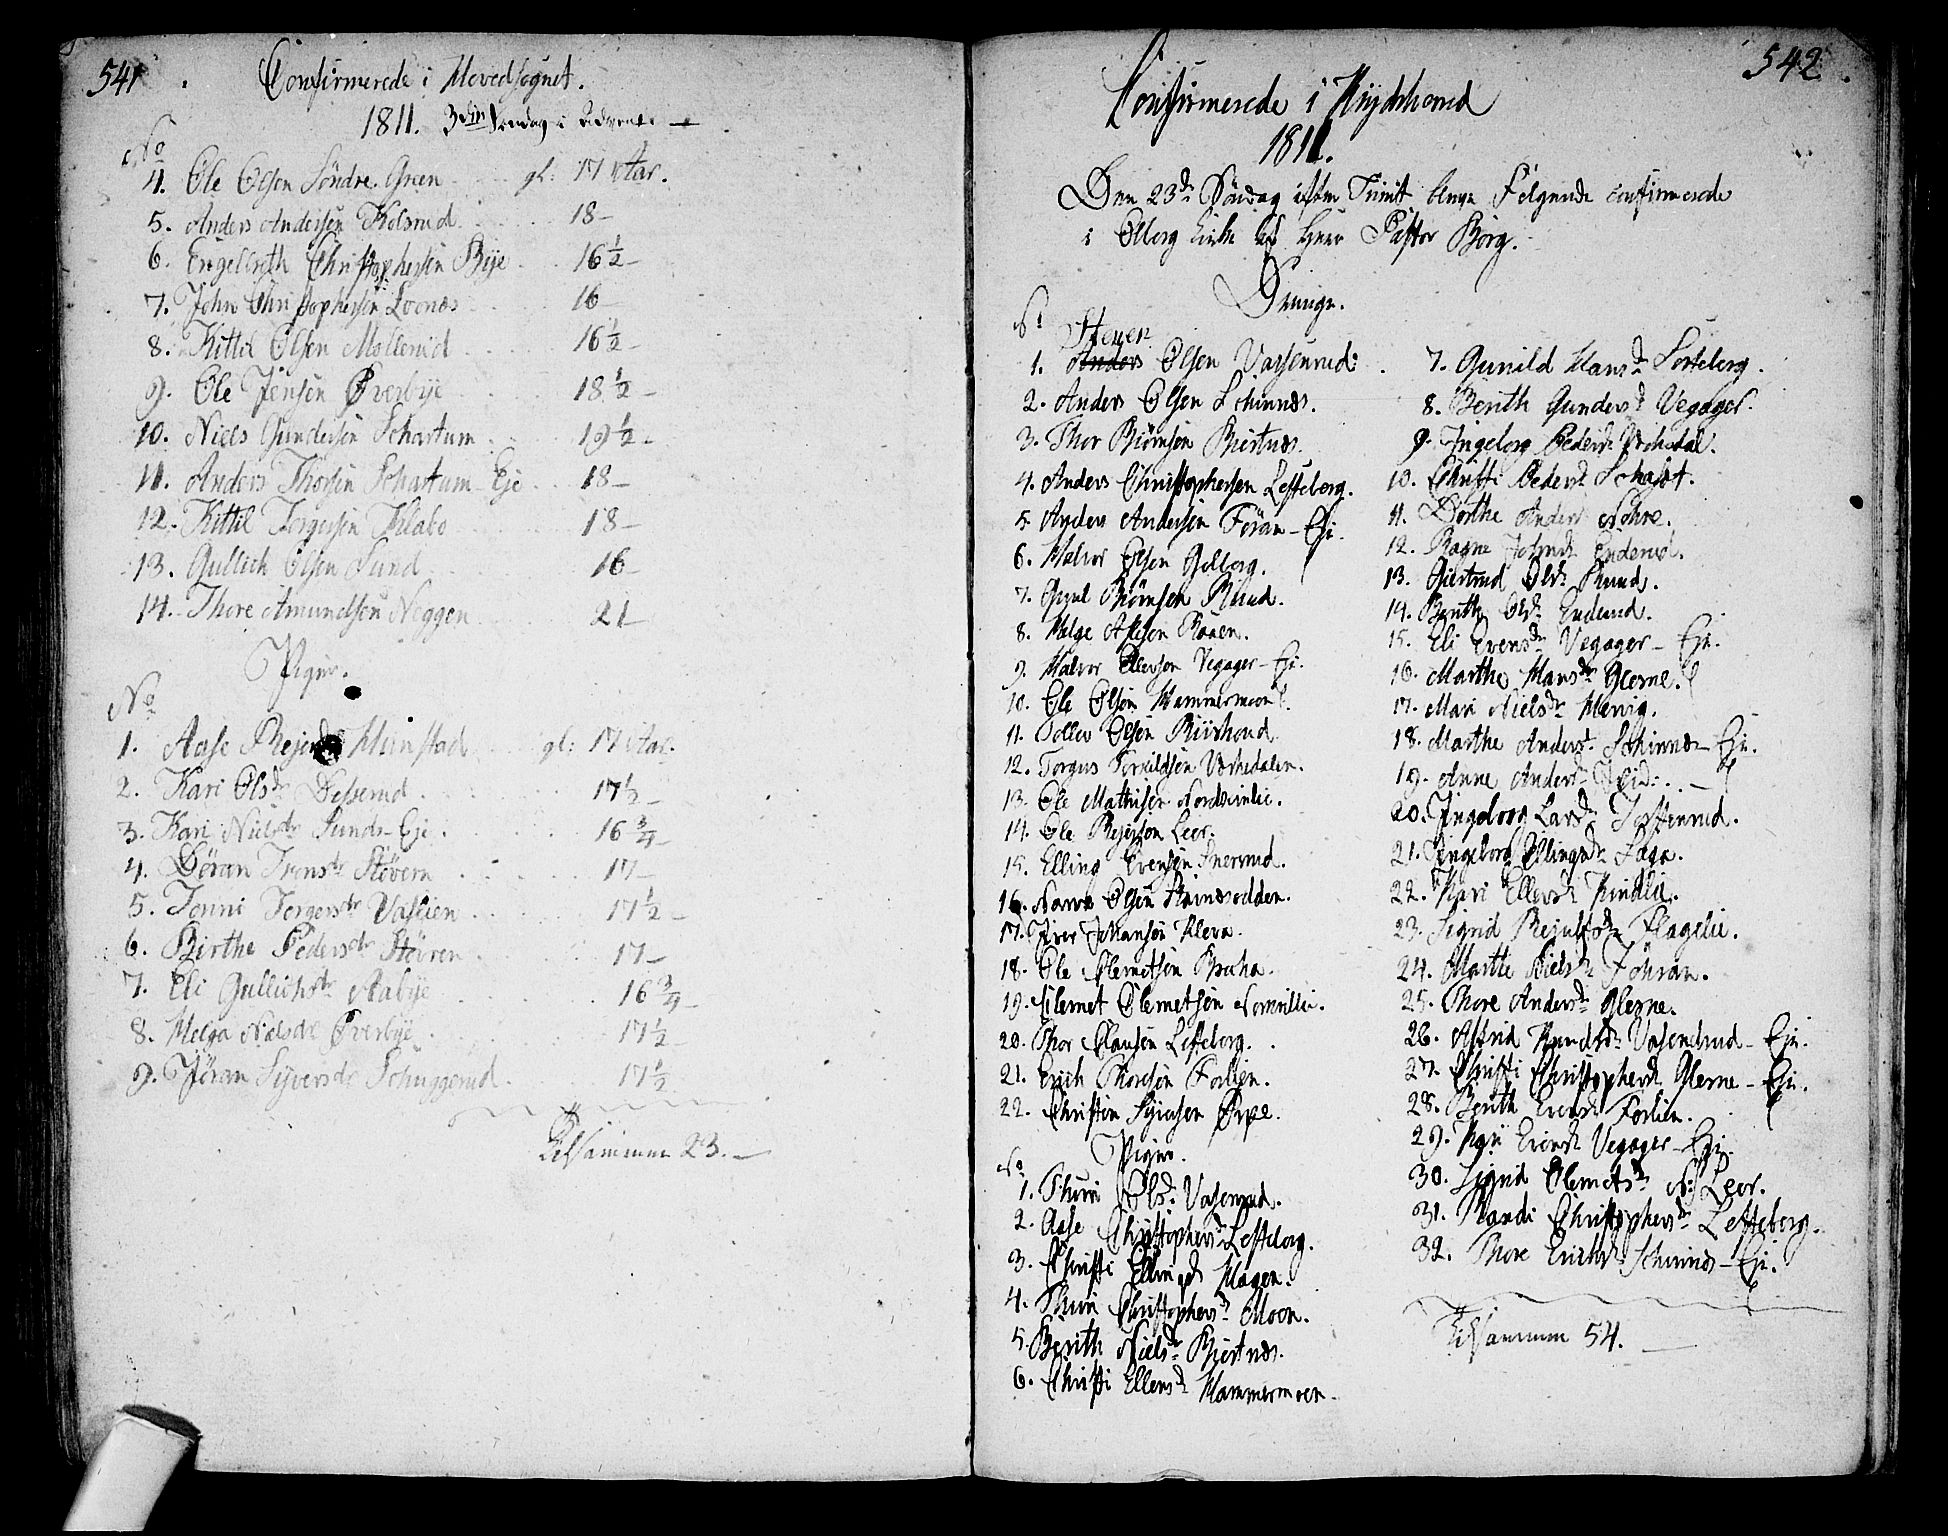 541
Confirmerede i Hovedsognet.
1811. 3die Søndag i Advent. —
No
4. Ole Olsen Søndre Gruen gl: 17 Aar.
5. Anders Andersen Kolsrud 18 —
6. Engelbreth Christophersen Bije 16 1/2 —
7. John Christophersen Loenes 16 —
8. Kittil Olsen Mollerud 16 1/2 —
9. Ole Jensen Øverbije 18 1/2 —
10. Niels Gundersen Schartum 19 1/2 —
11. Anders Thorsen Schartum-Eje 18 —
12. Kittil Torgersen Klabo 18 —
13. Gullich Olsen Sund 16 —
14. Thore Amundsen Neggen 21 —
Piger.
No
1. Aase Rejersd Himstad gl: 17 Aar.
2. Kari Olsdr Desserud 17 1/2 —
3. Kari Nielsdr Sunds-Eje. 16 3/4 —
4. Døran Ivensdr Støvern 17 —
5. Jonni Torgersdr Vaslien 17 1/2 —
6. Birthe Pedersdr Støvren 17 —
7. Eli Gullichsdr Aabye 16 3/4 —
8. Helga Nielsdr Øverbije 17 1/2 —
9. Jøran Sijversdr Schuggerud. 17 1/2
Tilsammen 23. —
542
Confirmerede i Krydsherred
1811.
Den 23de Søndag efter Trinit bleve Følgende confirmerede
i Olberg Kirke af Herr Pastor Borg.
Drenge.
No
Stener
1. Anders Olsen Vassenrud.
2. Anders Olsen Schinnes.
3. Thor Biørnsen Biertnæs.
4. Anders Christophersen Lesteberg.
5. Anders Andersen Føran — Eje.
6. Halvor Olsen Golberg.
7. Gunul Biørnsen Ruud.
8. Helge Aslesen Roaen.
9. Halvor Ellevsen Vegager — Eje.
10. Ole Olsen Hammermoen
11. Tollev Olsen Büirhoud
12. Torgus Torkildsen Verhedalen.
13. Ole Mathisen Nordvinlie.
14. Ole Rejersen Leer.
15. Elling Evensen Snersrud.
16. Narve Olsen Ramsodden.
17. Iver Johansen Kleva.
18. Ole Clemetsen Braha.
19. Clemet Clemetsen Nordvinlie.
20. Thor Clausen Lesteberg.
21. Erich Thoresen Forlien.
22. Christen Sijversen Ørpe.
Piger.
No
1. Thuri Olsd: Vasenrud.
2. Aase Christophersdr Lesteberg.
3. Christi Ellingsdr Hagen.
4. Thuri Christophersdr Moen.
5. Berith Nielsdr Biertnæs.
6. Christi Ellensdr Hammermoen.
7. Gunild Hansdr Sorteberg.
8. Berith Gundersdr Vegager.
9. Ingeborg Pedersdr Verhedal.
10. Christi Pedersdr Schafst.
11. Dorthe Andersdr Nohre.
12. Ragne Johnsdr Enderud.
13. Giertrud Olsdr Ruud.
14. Berith Olsdr Enderud.
15. Eli Evensdr Vegager — Eje.
16. Marthe Hansdr Glesne.
17. Mari Nielsdr Hævig.
18. Marthe Andersdr Schinnes — Eje.
19. Anne Andersdr Jeid:. —
20. Ingeborg Larsdr Tostenrud.
21. Ingeborg Ellingsdr Saga.
22. Kari Ellevsdr Hindlie.
23. Sigrid Rejulfsdr Flagelie.
24. Marthe Nielsdr Jøhran.
25. Thore Andersdr Glesne.
26. Astrid Knudsdr Vasendrud — Eje.
27. Christi Christophersdr Glesne — Eje.
28. Berith Evensdr Forlien.
29. Kari Evensdr Vegager — Eje.
30. Sigrid Clemetsdr N: Leer.
31. Randi Christophersdr Lesteberg.
32. Thore Erichsdr Schinnes — Eje.
Tilsammen 54. —